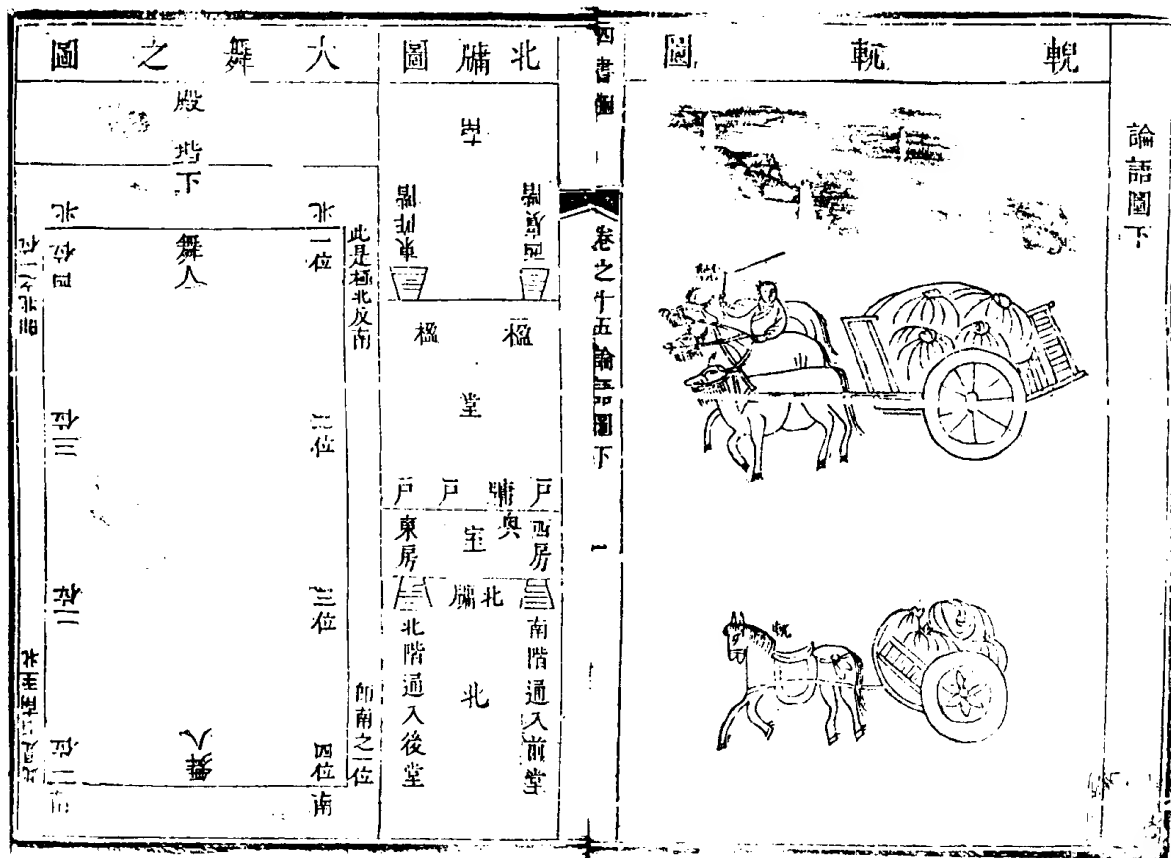 論語圖下
輗軏圖
輗
軏
四書圖
卷之十五論語圖下
一
北牖圖
南
西賓階
東阼階
楹
楹
堂
戶
牖
戶
戶
奧
西房
室
東房
北牖
南階通入前堂
北
北階通入後堂
大舞之圖
殿
階
下
北
北
此是極北反南
一位
二位
三位
四位
南
即南之一位
舞人
舞人
四位
三位
二位
一位